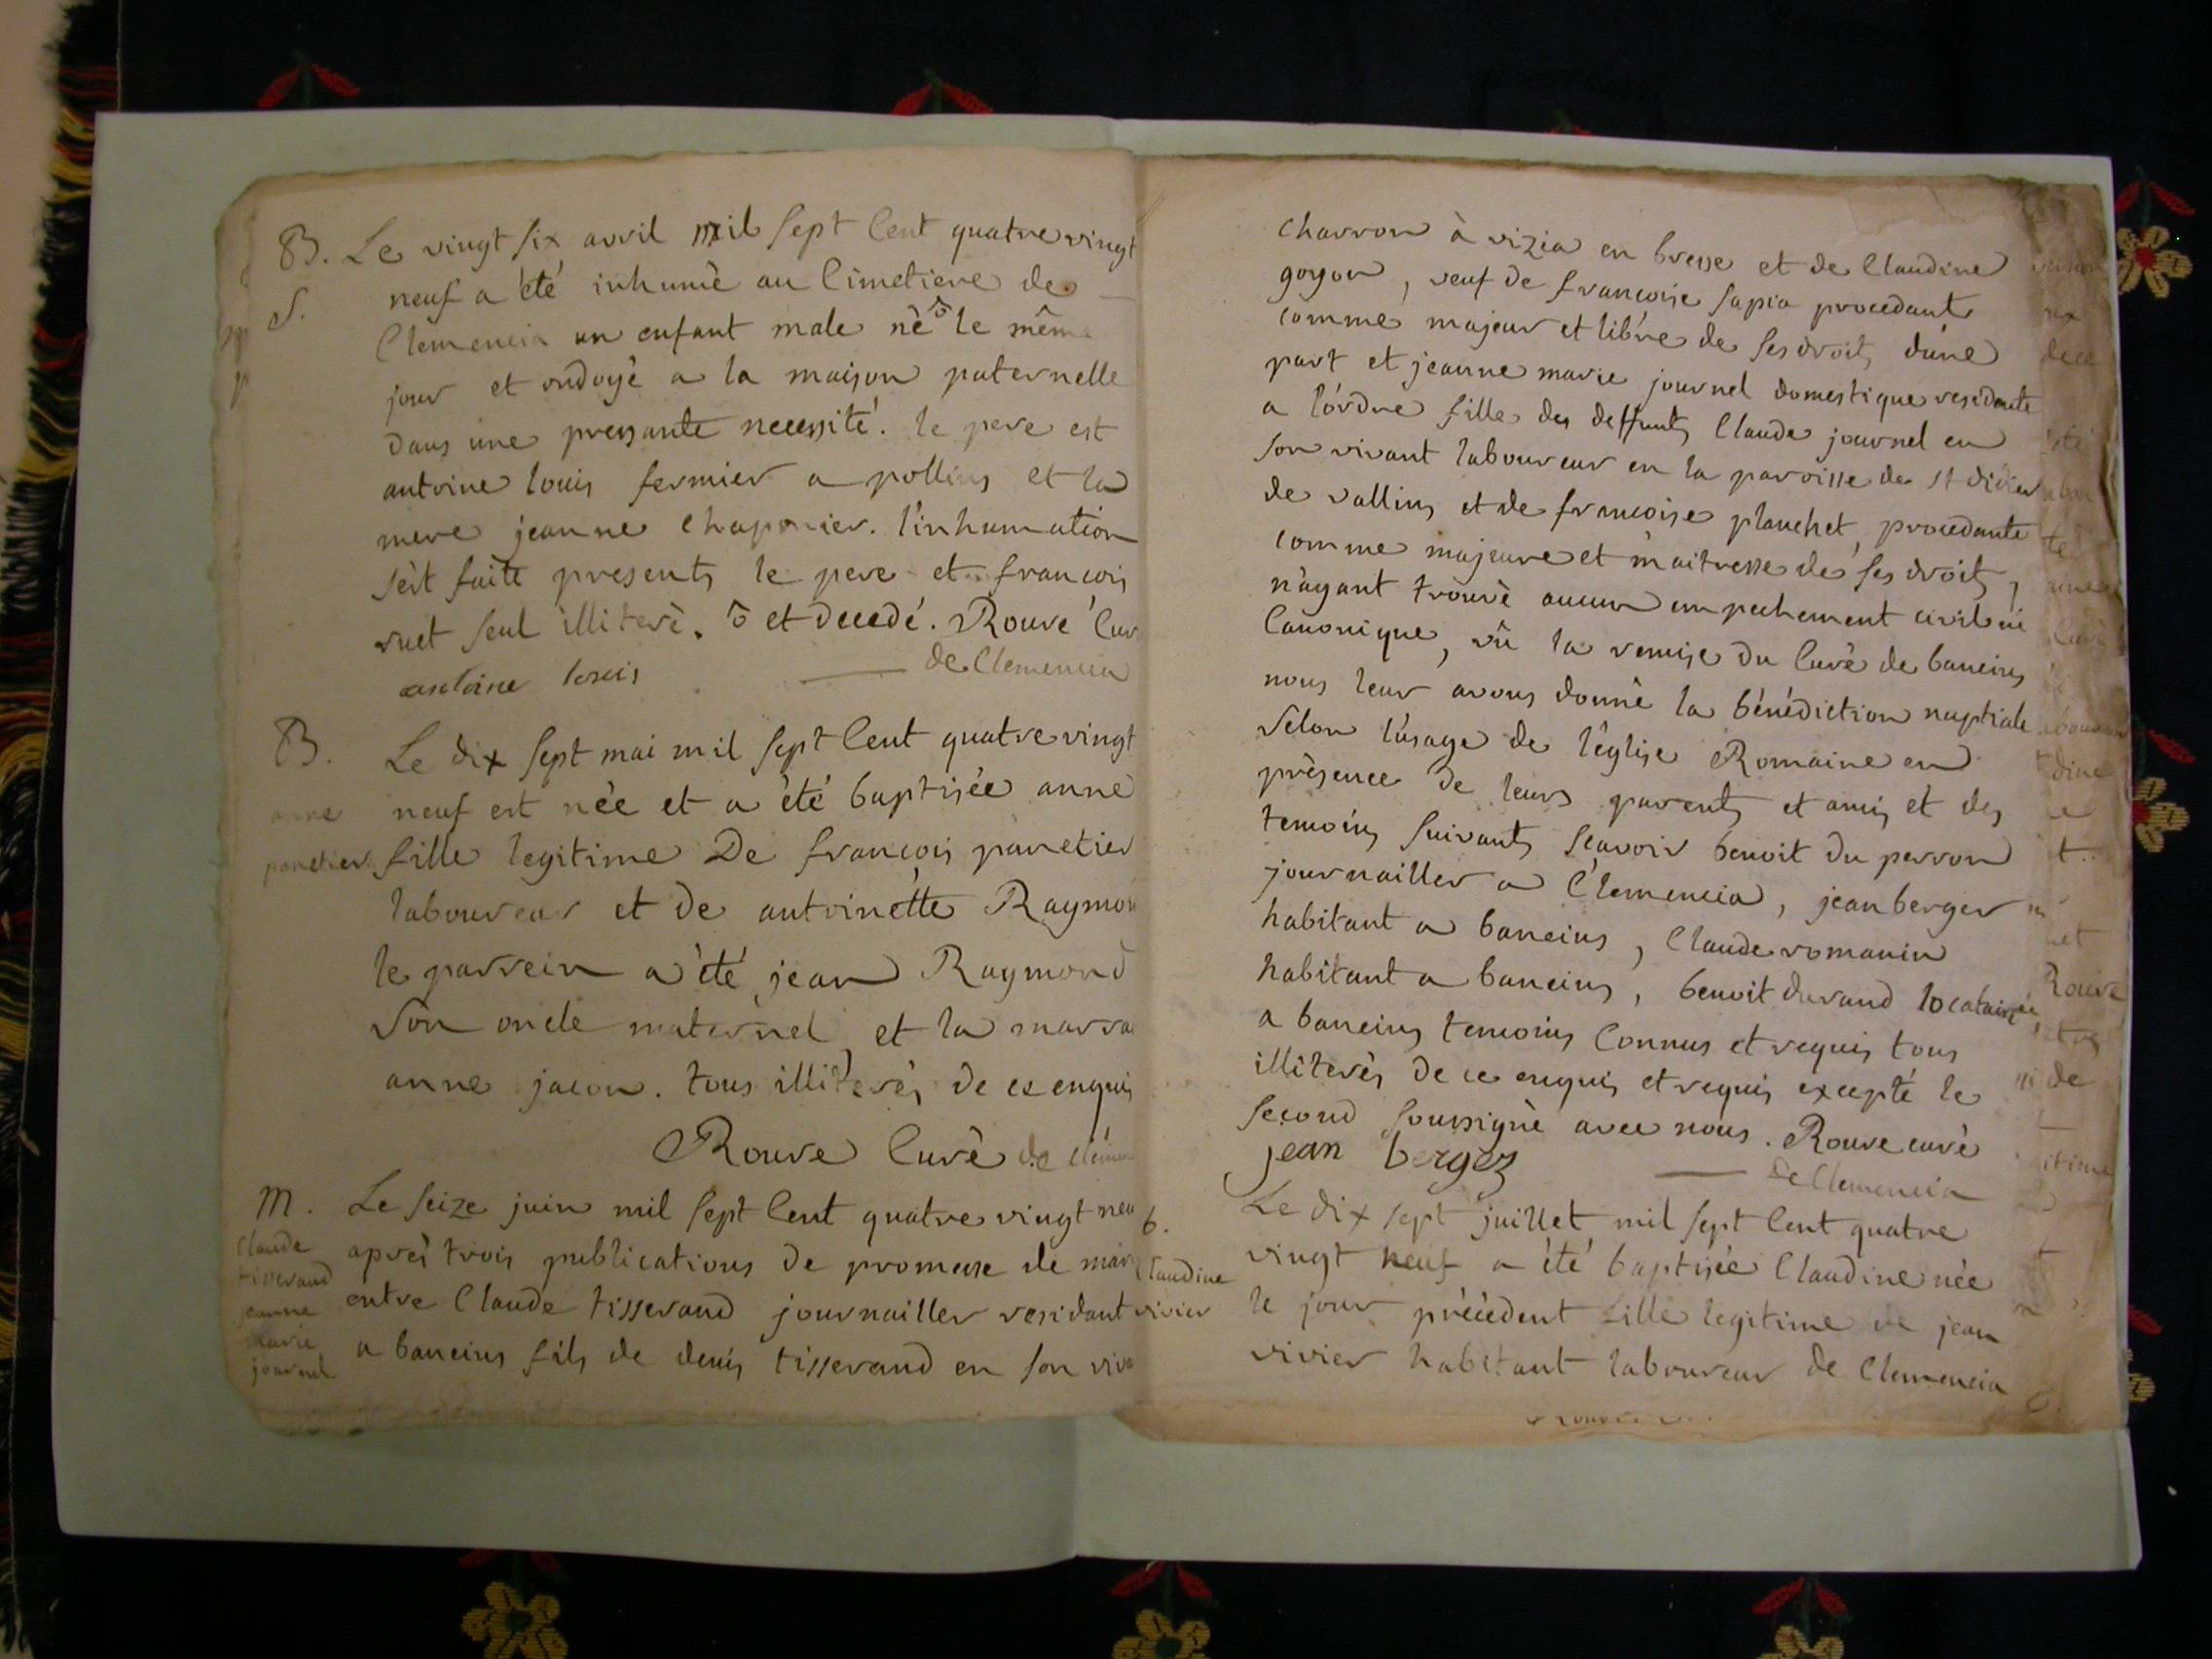 B. Le vingt six avril mil sept Cent quatre vingt
S. neuf a été inhumè au Cimetiere de
Clemencia un enfant male nè le même
jour et ondoyè a la maison paternelle
dans une pressante necessité. le pere est
antoine louis fermier a pollins et la
mere jeanne chaponier. l'inhumation
s'est faite presents le pere et françois
ruet seul illiterè. et decedé. Rouve Cur
antoine louis de Clemencia
B. Le dix sept mai mil sept Cent quatre vingt
anne neuf est nèe et a été baptisée anne
panetier fille legitime De françois panetier
laboureur et de antoinette Raymon
le parrein a été jean Raymond
son oncle maternel et la marra
anne jacon. tous illiterès de ce enquis
Rouve Curè de Clémen
M. Le seize juin mil sept Cent quatre vingt neu
Claude aprés trois publications de promesse de mari
tisserand entre Claude tisserand journailler residant
jeanne
marie a baneins fils de denis tisserand en son viva
journel
charron à vizia en bresse et de Claudine
goyon, veuf de françoise sapia procedant
comme majeur et libre de ses droits d'une
part et jeanne marie journel domestique residente
a l'ordre fille des deffunts Claude journel en
son vivant laboureur en la paroisse de st didier
de vallins et de françoise planchet, procedante
comme majeure et maitresse de ses droits,
n'ayant trouvè aucun empechement civil ni
Canonique, vû la remise du Curè de baneins
nous leur avons donnè la bénédiction nuptiale
selon l'usage de l'église Romaine en
prèsence de leurs parents et amis et des
temoins suivants sçavoir benoit du perron
journailler a Clemencia, jean berger
habitant a baneins, Claude romanin
habitant a baneins, benoit durand locataire
a baneins temoins Connus et requis tous
illiterès de ce enquis et requis excepté le
second soussignè avec nous. Rouve curè
jean berger de Clemencia
b. Le dix sept juillet mil sept Cent quatre
Claudine vingt neuf a été baptisée Claudine née
vivier le jour précédent fille legitime de jean
vivier habitant laboureur de Clemencia